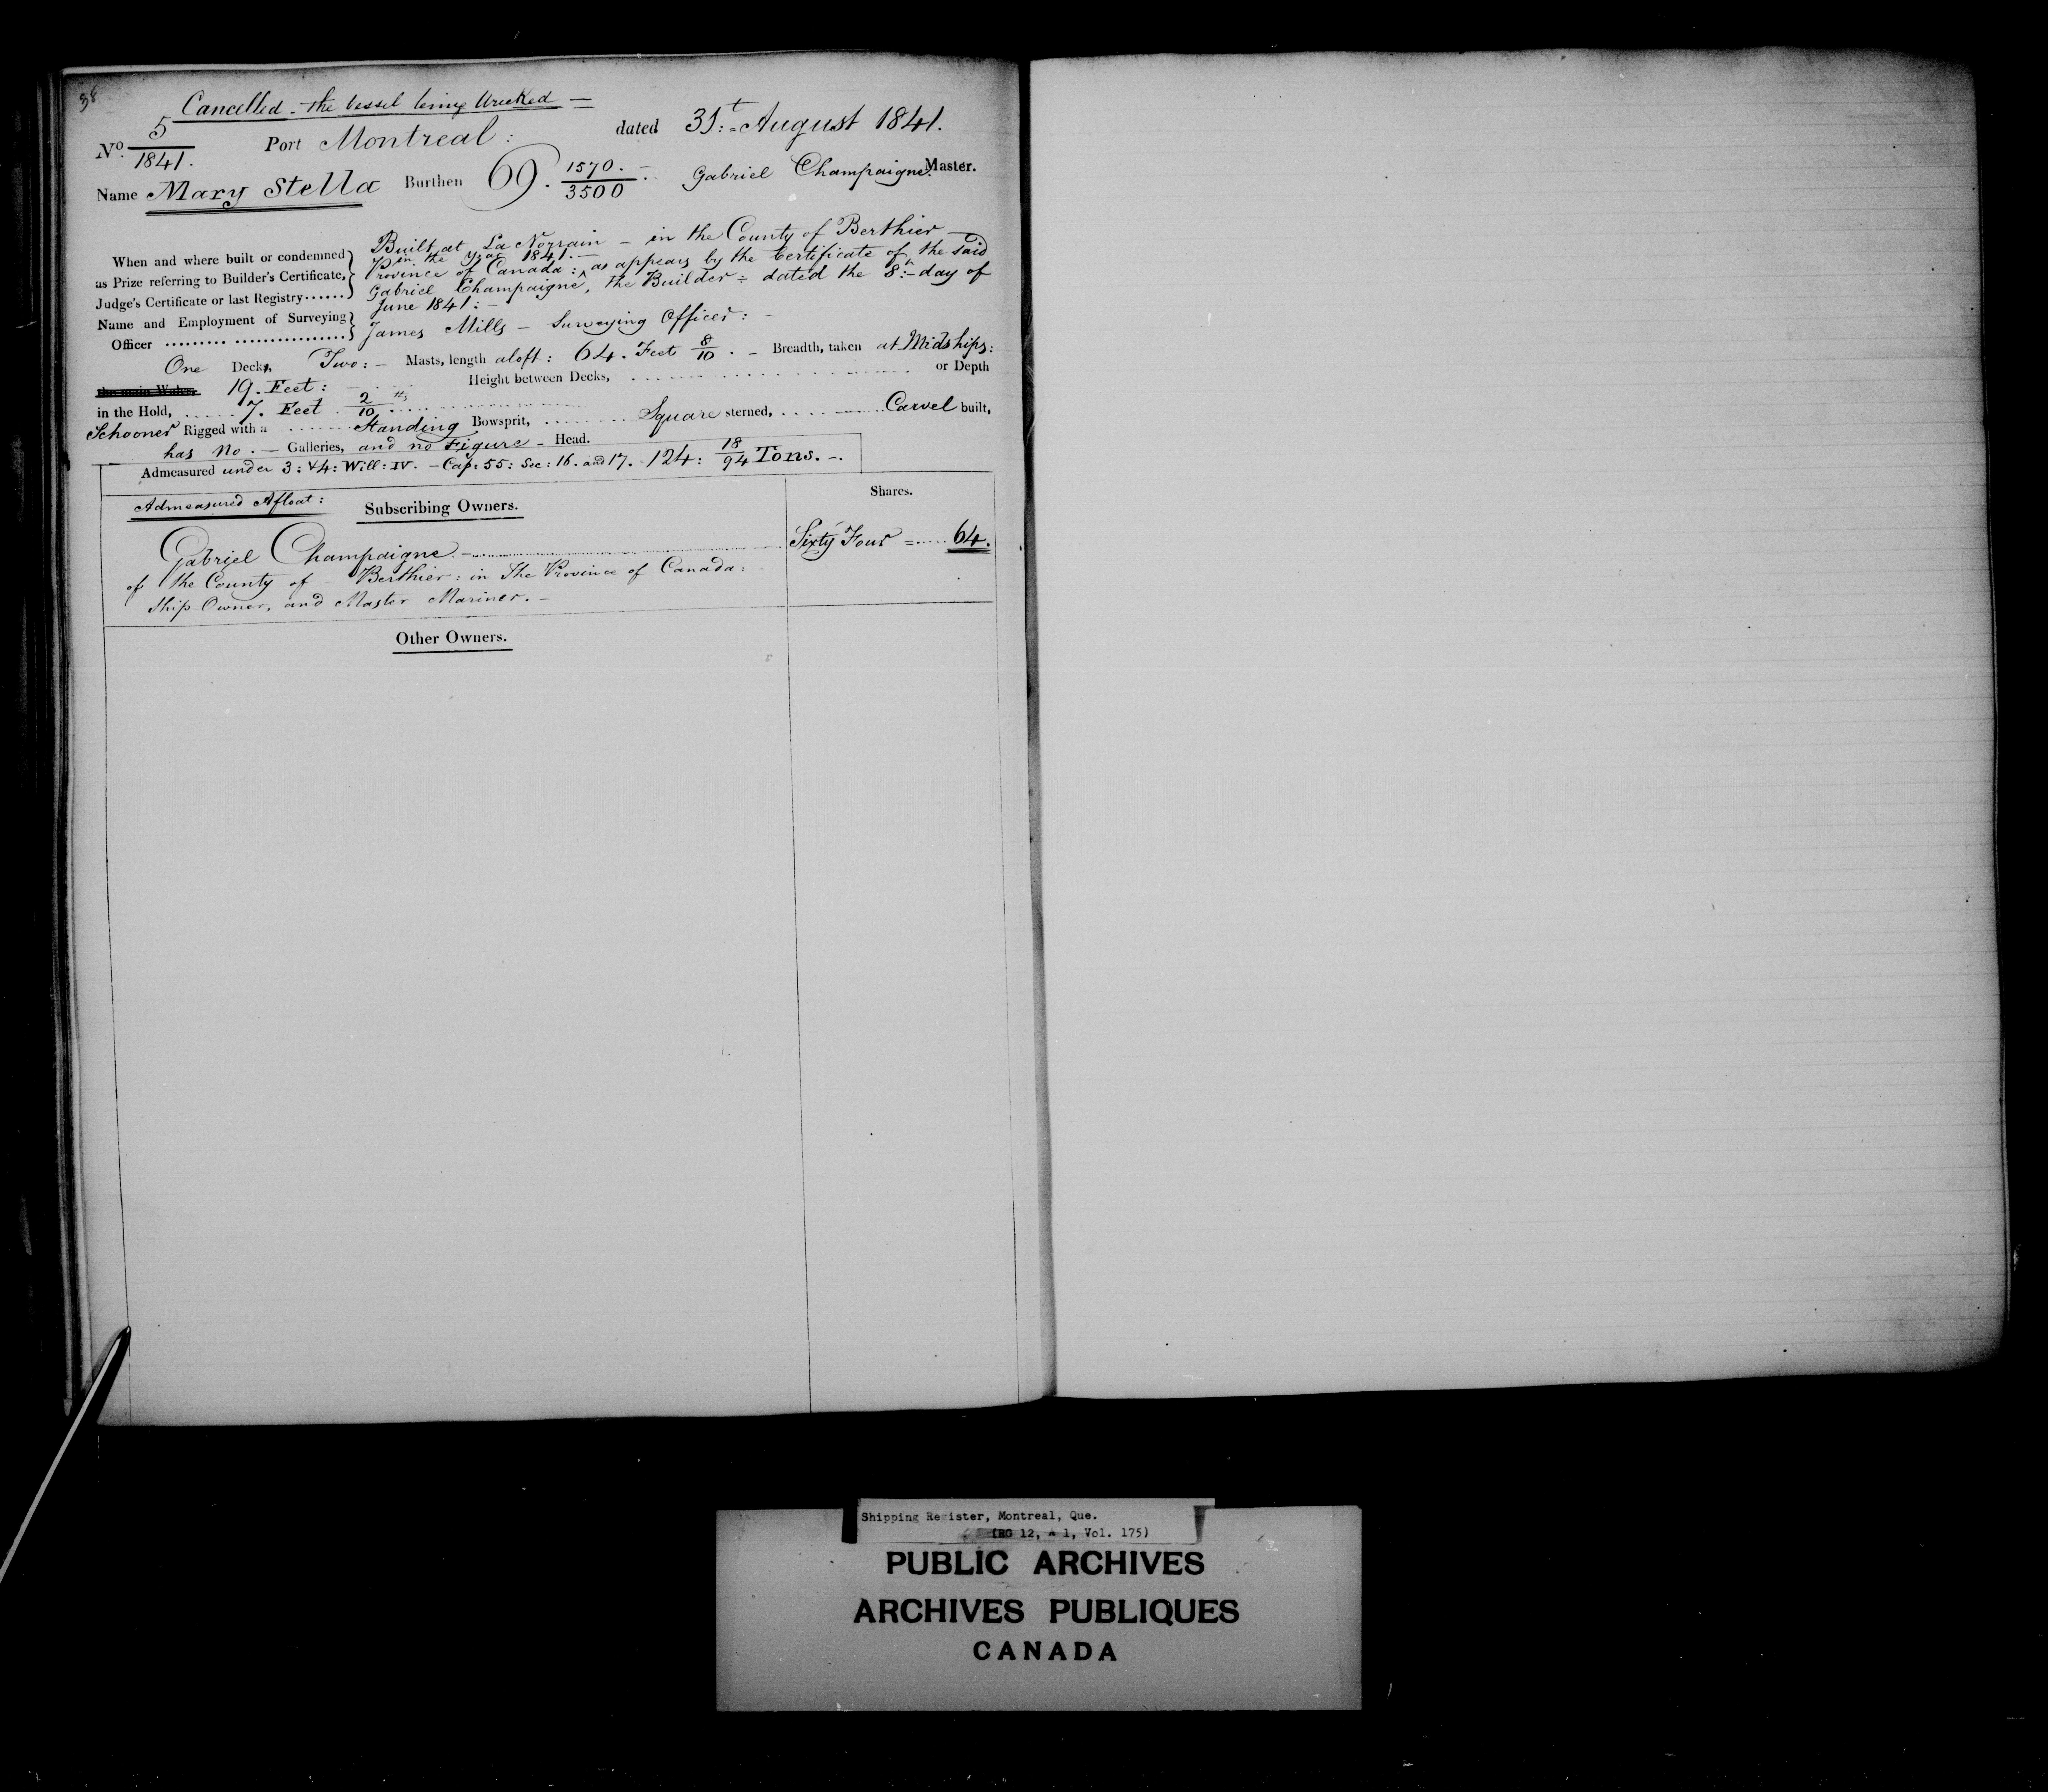 38
Cancelled - the vessel being Wrecked -
No. 5/1841. Port Montreal: dated 31:t August 1841.
Name Mary Stella Burthen 69. 1570/3500 Gabriel Champaigne Master.
When and where built or condemned as Prize referring to Builder's Certificate, Judge's Certificate or last Registry......
Built at La Norrain - in the County of Berthier -
in the year 1841. -
Province of Canada: ^ as appears by the Certificate of the said
Gabriel Champaigne, the Builder: dated the 8:h day of
June 1841: -
Name and Employment of Surveying Officer
James Mills - Surveying Officer: -
One Deck, Two: - Masts, length aloft: 64. Feet 8/10. - Breadth, taken at Midships:
the main Wales, 19. Feet: - Height between Decks, or Depth
in the Hold, 7. Feet 2/10ths
Schooner Rigged with a Standing Bowsprit, Square sterned, Carvel built,
has No. - Galleries, and no Figure - Head.
Admeasured under 3: & 4: Will: IV. - Cap: 55: Sec: 16. and 17. 124: 18/94 Tons. -
Admeasured Afloat:
Subscribing Owners. Shares.
Gabriel Champaigne. - Sixty Four = 64.
of the County of Berthier: in The Province of Canada:
Ship Owner, and Master Mariner. -
Other Owners.
Shipping Register, Montreal, Que.
(RG 12, A 1, Vol. 175)
PUBLIC ARCHIVES
ARCHIVES PUBLIQUES
CANADA